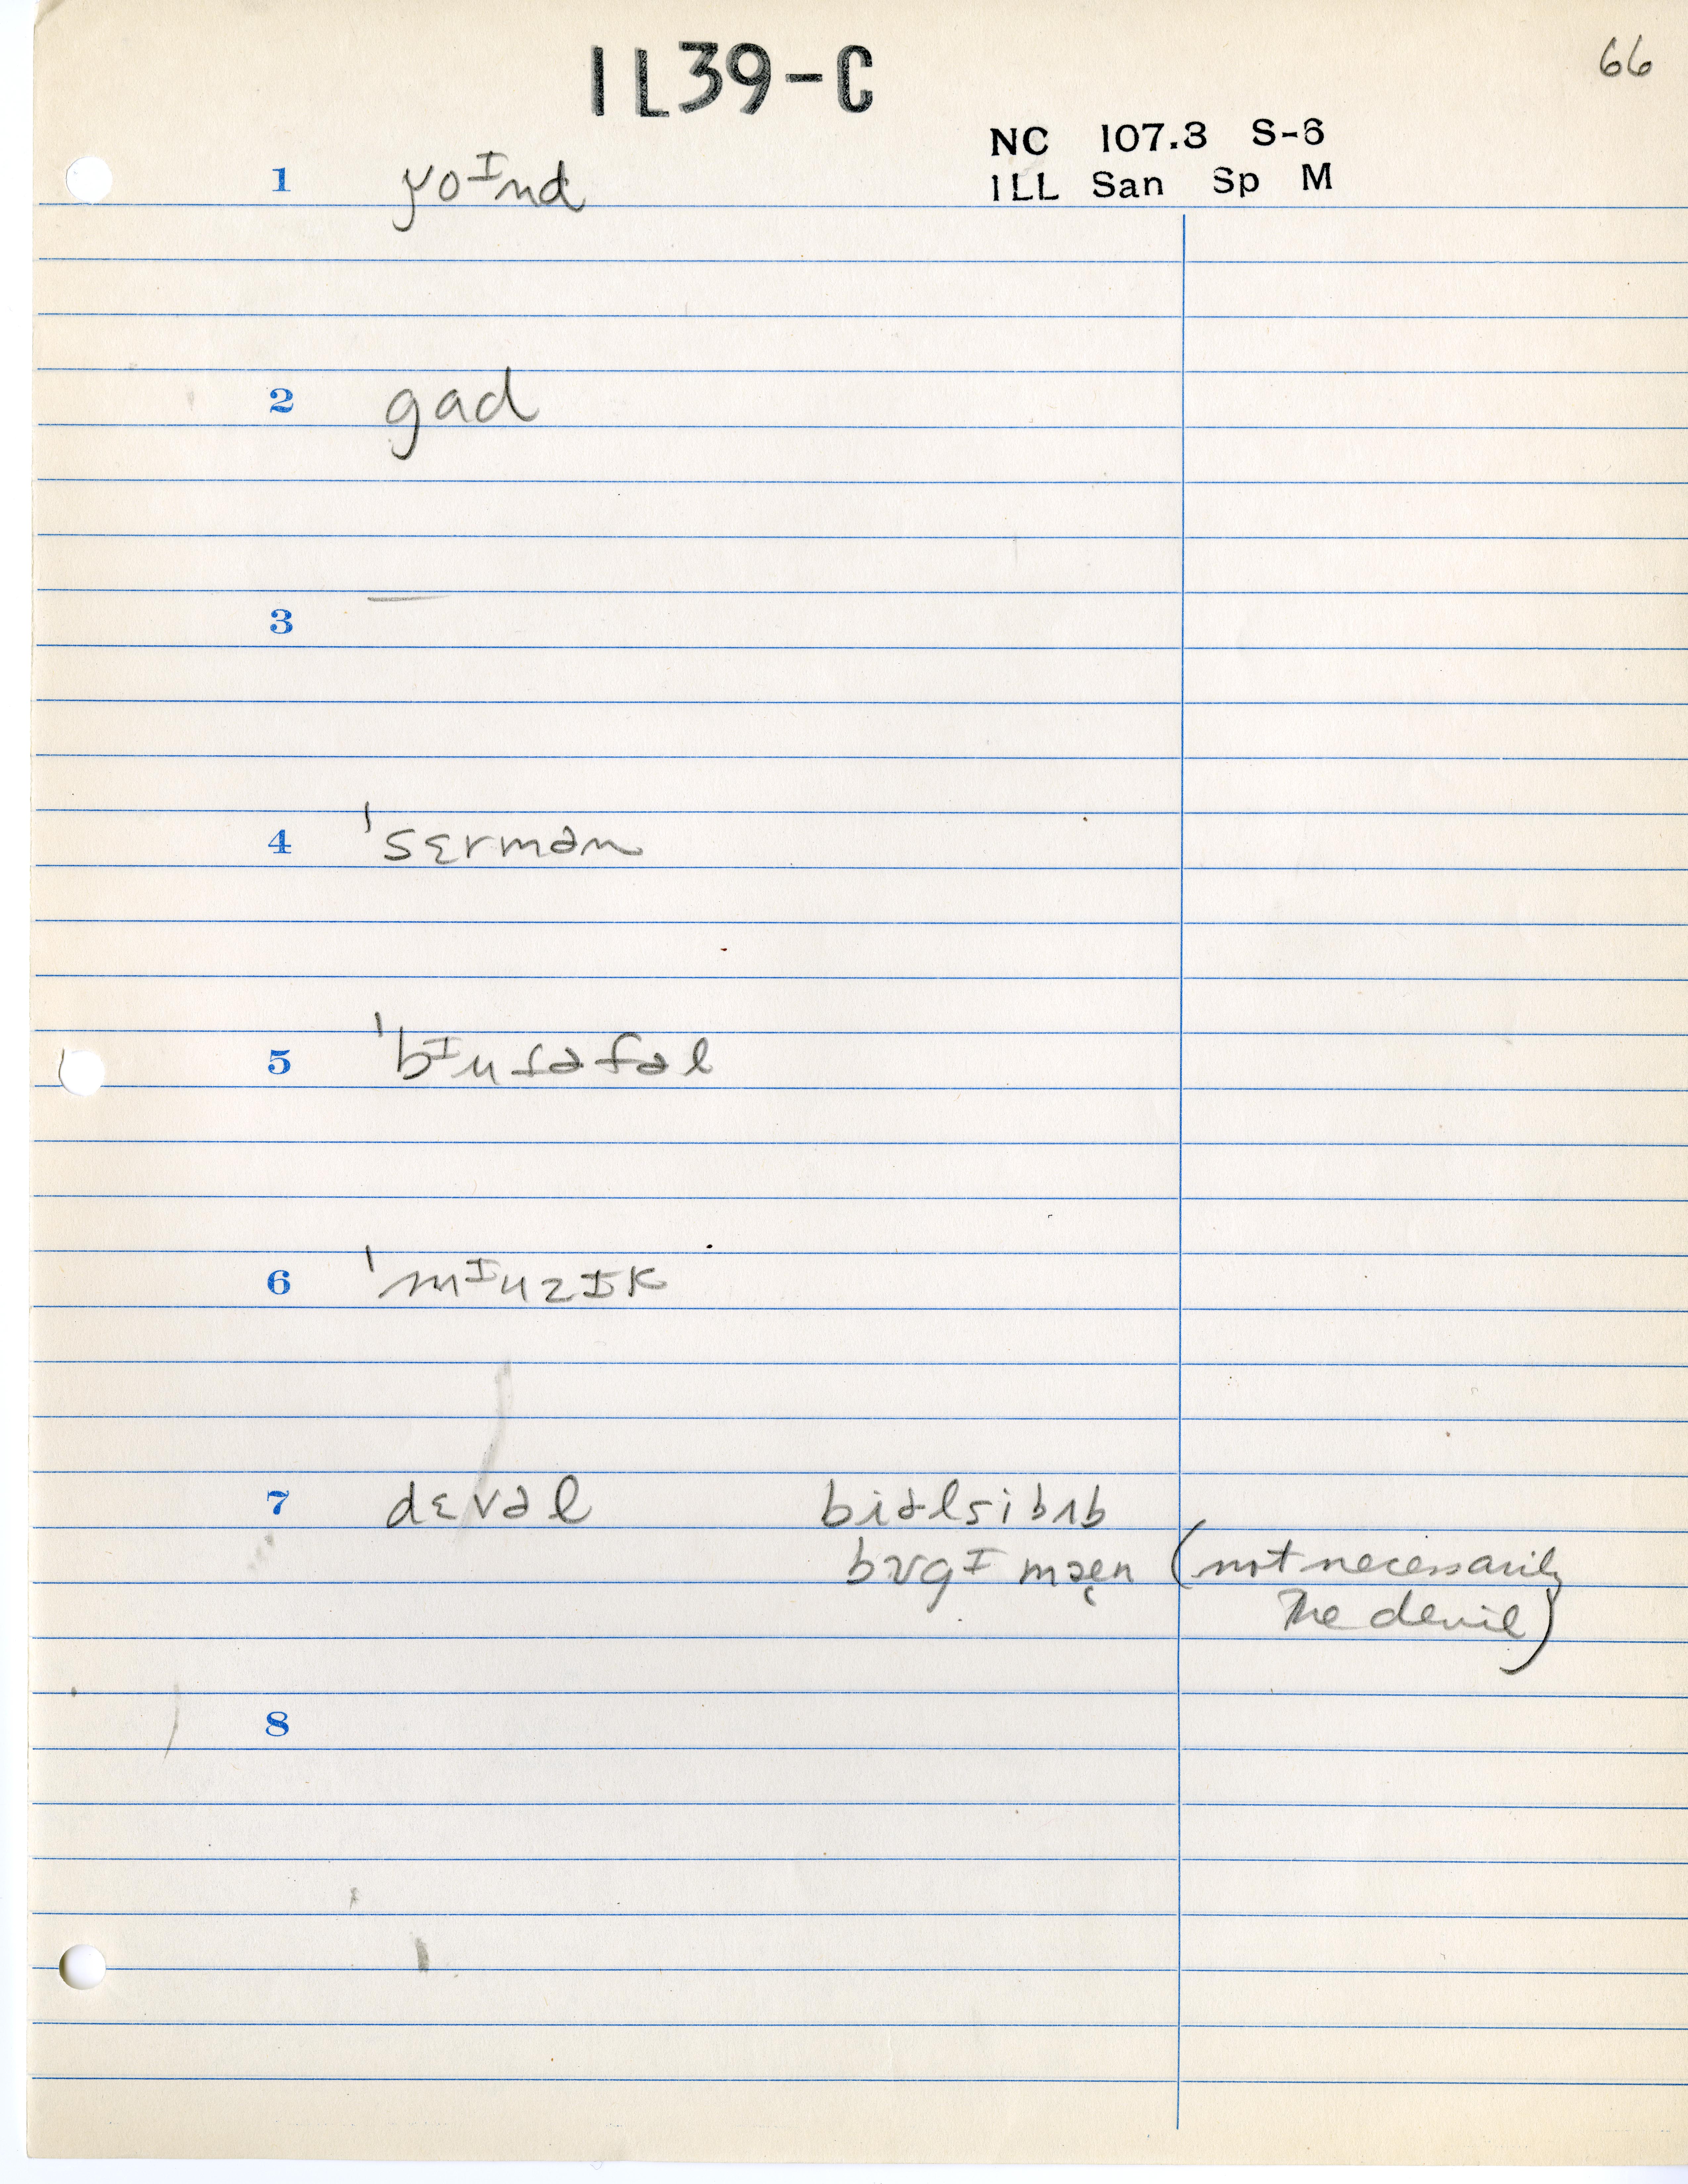 IL39-C
66
NC 107.3 S-6
ILL San Sp M
1 ɣoɪnd
2 gad
3 —
4 ˈsɛrmən
5 ˈbɪutəfəl
6 ˈmɪuzɪk
7 dɛvəl biəlsibʌb
bʊgɪ mæ̨n (not necessarily
the devil)
8